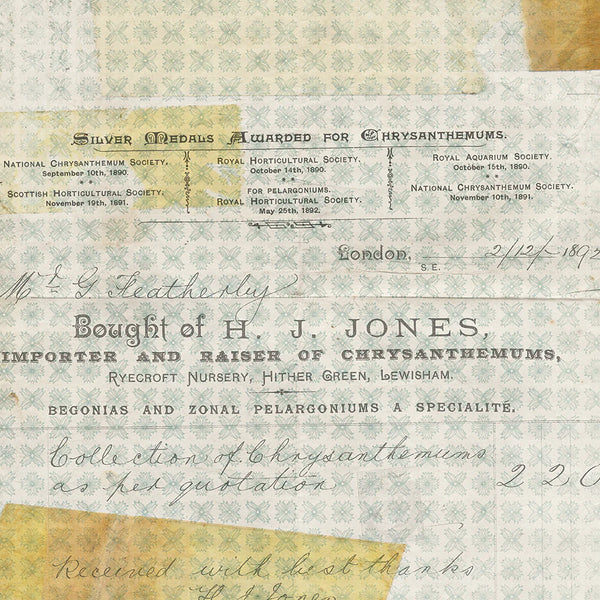 Silver Medals Awarded for Chrysanthemums.
National Chrysanthemum Society. Royal Horticultural Society. Royal Aquarium Society.
September 10th, 1890. October 14th, 1890. October 15th, 1890.
Scottish Horticultural Society. FOR PELARGONIUMS. National Chrysanthemum Society.
November 19th, 1891. Royal Horticultural Society. November 10th, 1891.
May 25th, 1892.
London, 2/12/- 189
S.E.
Mr G Featherby
Bought of H. J. JONES,
IMPORTER AND RAISER OF CHRYSANTHEMUMS,
Ryecroft Nursery, Hither Green, Lewisham.
BEGONIAS AND ZONAL PELARGONIUMS A SPECIALITÉ.
Collection of Chrysanthemums
as per quotation 2 2 0
Received with best thanks
H. J. Jones